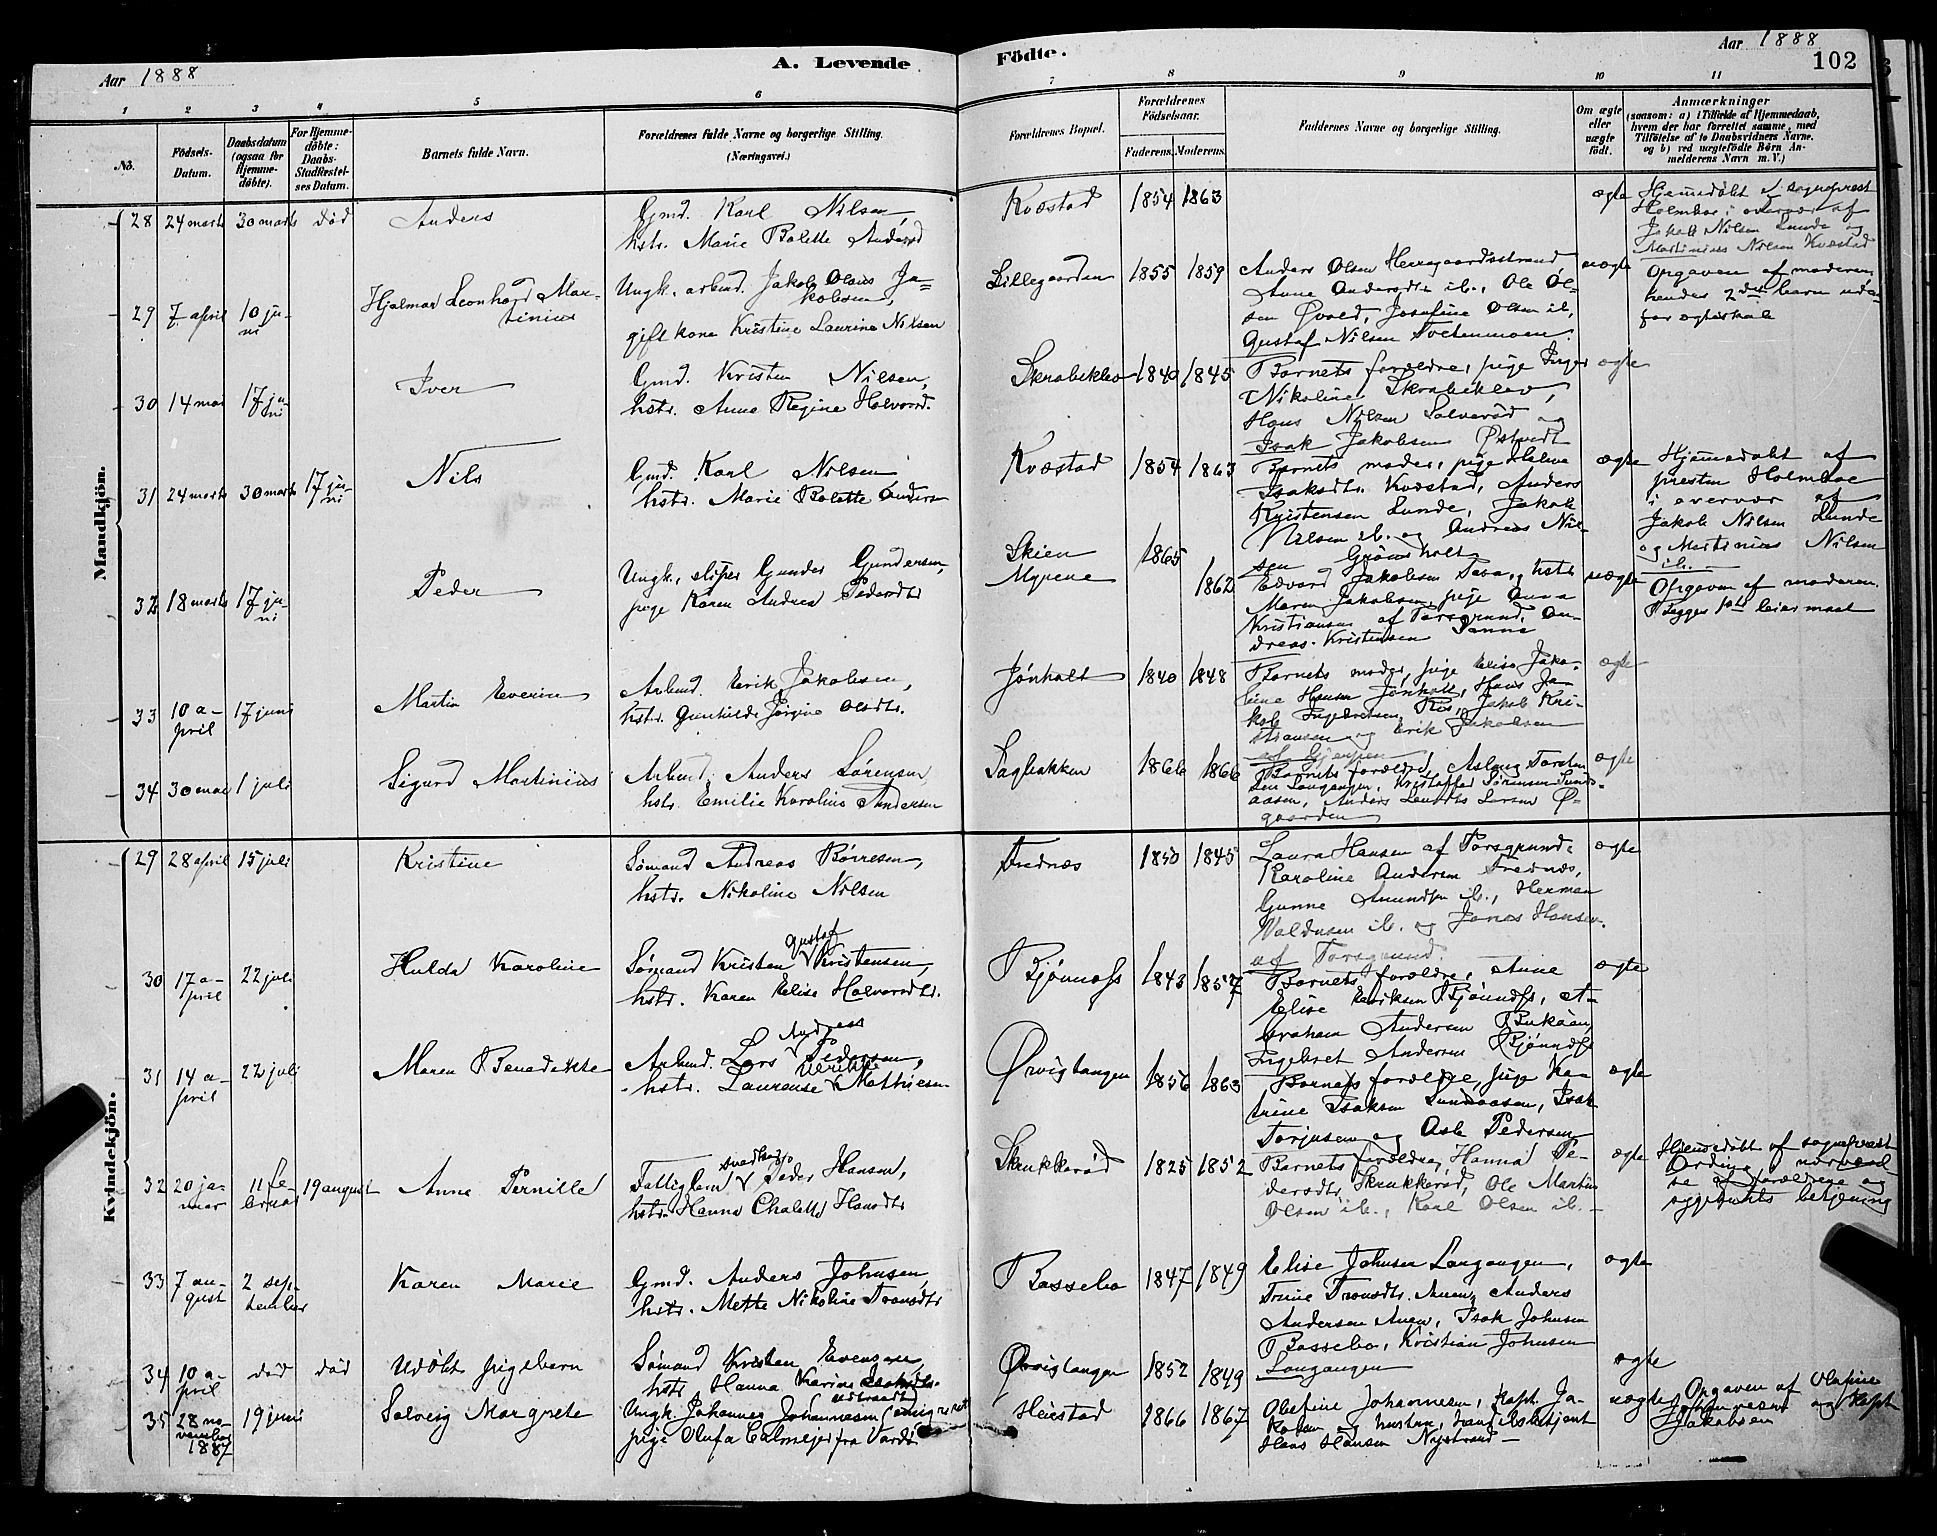 Aar 1888
A. Levende
Födte.
Aar 1888
102
1 2 3 4 5 6 7 8 9 10 11
No.
Födsels-Datum.
Daabsdatum (ogsaa for Hjemme-döbte).
For Hjemme-döbte: Daabs-Stadfæstel-ses Datum.
Barnets fulde Navn.
Forældrenes fulde Navne og borgerlige Stilling. (Næringsvei.)
Forældrenes Bopæl.
Forældrenes Födselsaar.
Faderens. Moderens.
Faddernes Navne og borgerlige Stilling.
Om ægte eller uægte födt.
Anmærkninger
(saasom: a) i Tilfælde af Hjemmedaab, hvem der har forrettet samme, med Tilföielse af to Daabsvidners Navne, og b) ved uægtefödte Börn An-melderens Navn m. V.)
Mandkjön.
28 24 marts 30 marts död Anders
Gmd. Karl Nilsen,
hstr. Marie Bolette
Kvæstad 1854 1863
ægte
Hjemedöbt af sogneprest
Holmboe i overvær af
Jakob Nilsen Lunde og
Martinius Nilsen Kvæstad
29 7 april 10 ju-
ni
Hjalmar Leonhard Mar-
tinius
Ungk. arbmd. Jakob Olaus Ja=
kobsen,
gift kone Kristine Laurine Nilsen
Lillegaarden 1855 1859
Anders Olsen Herregaardsstrand
Anne Andersdtr ib., Ole Ol-
sen Qvald, Josefine Olsen ib,
Gustaf Nilsen Toltenmoen.
uægte
Opgaven af moderen
hendes 2det barn uden-
for ægteskab
30 14 mai 17 ju-
ni
Iver
Gmd. Kristen Nilsen,
hstr. Anne Regine Halvorsd.
Skrabeklev 1840 1845
Barnets forældre, pige Inger
Nikoline Skrabeklev,
Hans Nilsen Salverød og
Isak Jakobsen Østvedt
ægte
31 24 marts 30 marts 17 ju-
ni
Nils
Gmd. Karl Nilsen
hstr. Marie Bolette Anders
Kvæstad 1854 1863
Barnets moder, pige Helene
Isaksdtr. Kvæstad, Anders
Kristensen Lunde, Jakob
Nilsen ib. og Andreas Nil-
sen Grønsholt
ægte
Hjemmedøbt af
presten Holmboe
i overvær af
Jakob Nilsen Lunde
og Martinius Nilsen
ib.
32 18 marts 17 ju-
ni
Peder
Ungk., sliper Gunder Gundersen,
pige Karen Andrea Pedersdtr
Skien
Myrene
1865 1862
Edvard Jakobsen hstr
Maren Jakobsen, pige Anna
Kristiansen af Porsgrund, An-
dreas Kristensen Sanne
uægte
Opgaven af moderen.
Begges 1ste leiermaal
33 10 a-
pril
17 juni
Martin Everin
Arbmd. Erik Jakobsen,
hstr. Gunhilde Jørgine Olsdtr.
Jønholt 1840 1848
Barnets moder, pige Elise Jako-
bine Hansen Jønholt, Hans Ja-
kob Ingebretsen Ris, Jakob Kri-
stiansen og Erik Jakobsen
af Gjerpen
ægte
34 30 mai 1 juli
Sigurd Martinius
Arbmd. Anders Sørensen
hstr. Emilie Karoline Andersen
Sagbakken 1866 1866
Barnets forældre, Aslaug Torsten
sen Langangen, Kristoffer Sörensen Lunds-
aasen, Anders Larsen Ø-
gaarden
ægte
Kvindekjön.
29 28 april 15 juli
Kristine
Sømand Andreas Børresen,
hstr. Nikoline Nilsen
Frednæs 1850 1845
Laura Hansen af Porsgrund,
Karoline Andersen Frednæs,
Gunne Amundsen ib., Herman
Valdusen ib. og Jonas Hansen.
af Porsgrund.
ægte
30 17 a-
pril
22 juli
Hulda Karoline
Gustaf
Sømand Kristen Kristensen,
hstr. Karen Elise Halvorsdtr.
Bjønnæss 1843 1857
Barnets forældre, Anne
Elise Eriksen Bjønnæss, A-
braham Andersen
Ingebret Andersen Bjønnæss
ægte
31 14 a-
pril
22 juli
Maren Benedikte
Andreas
Arbmd. Lars Pedersen,
Ulrikke
hstr. Laurense Mathisen
Ørvigtangen 1856 1863
Barnets forældre, pige Ka-
trine Isaksen Lundaasen, Isak
Torjusen og Asle Pedersen
ægte
32 20 ja-
nuar
11 fe
bruar
19 august
Anne Pernille
Fattiglem Peder Hansen,
hstr. Hanna Hansdtr
Skrukkerød 1825 1852
Barnets forældre, Hanna Pe-
dersdtr Skrukkerød, Ole Martin
Olsen ib., Karl Olsen ib.
ægte
Hjemmedöbt af sogneprest
nærværel
se af forældrene og
betjening
33 7 au-
gust
2 sep-
tember
Karen Marie
Gmd. Anders Johnsen,
hstr. Mette Nikoline Tronsdtr
Bassebo 1847 1849
Elise Johnsen Langangen,
Trine Tronsdtr. Auen, Anders
Andersen Auen, Isak Johnsen
Bassebo, Kristian Johnsen
Langangen
ægte
34 10 a-
pril
död död
Udöbt pigebarn
Sømand Kristen Evensen,
hstr Hanna Karine Isaksdtr.
Ørvigtangen 1852 1849
ægte
35 28 no-
vember
1887
19 juni
Solveig Margrete
Ungk. Johannes Johannesen (emigreret
pige Olufa Calmejer fra Vardø
Heistad 1866 1867
Olefine Johannesen, kapt. Ja-
kobsen og hustru, handelsbetjent
Hans Hansen Nystrand
uægte
Opgaven af Olefine
Johannesen og kapt
Jakobsen